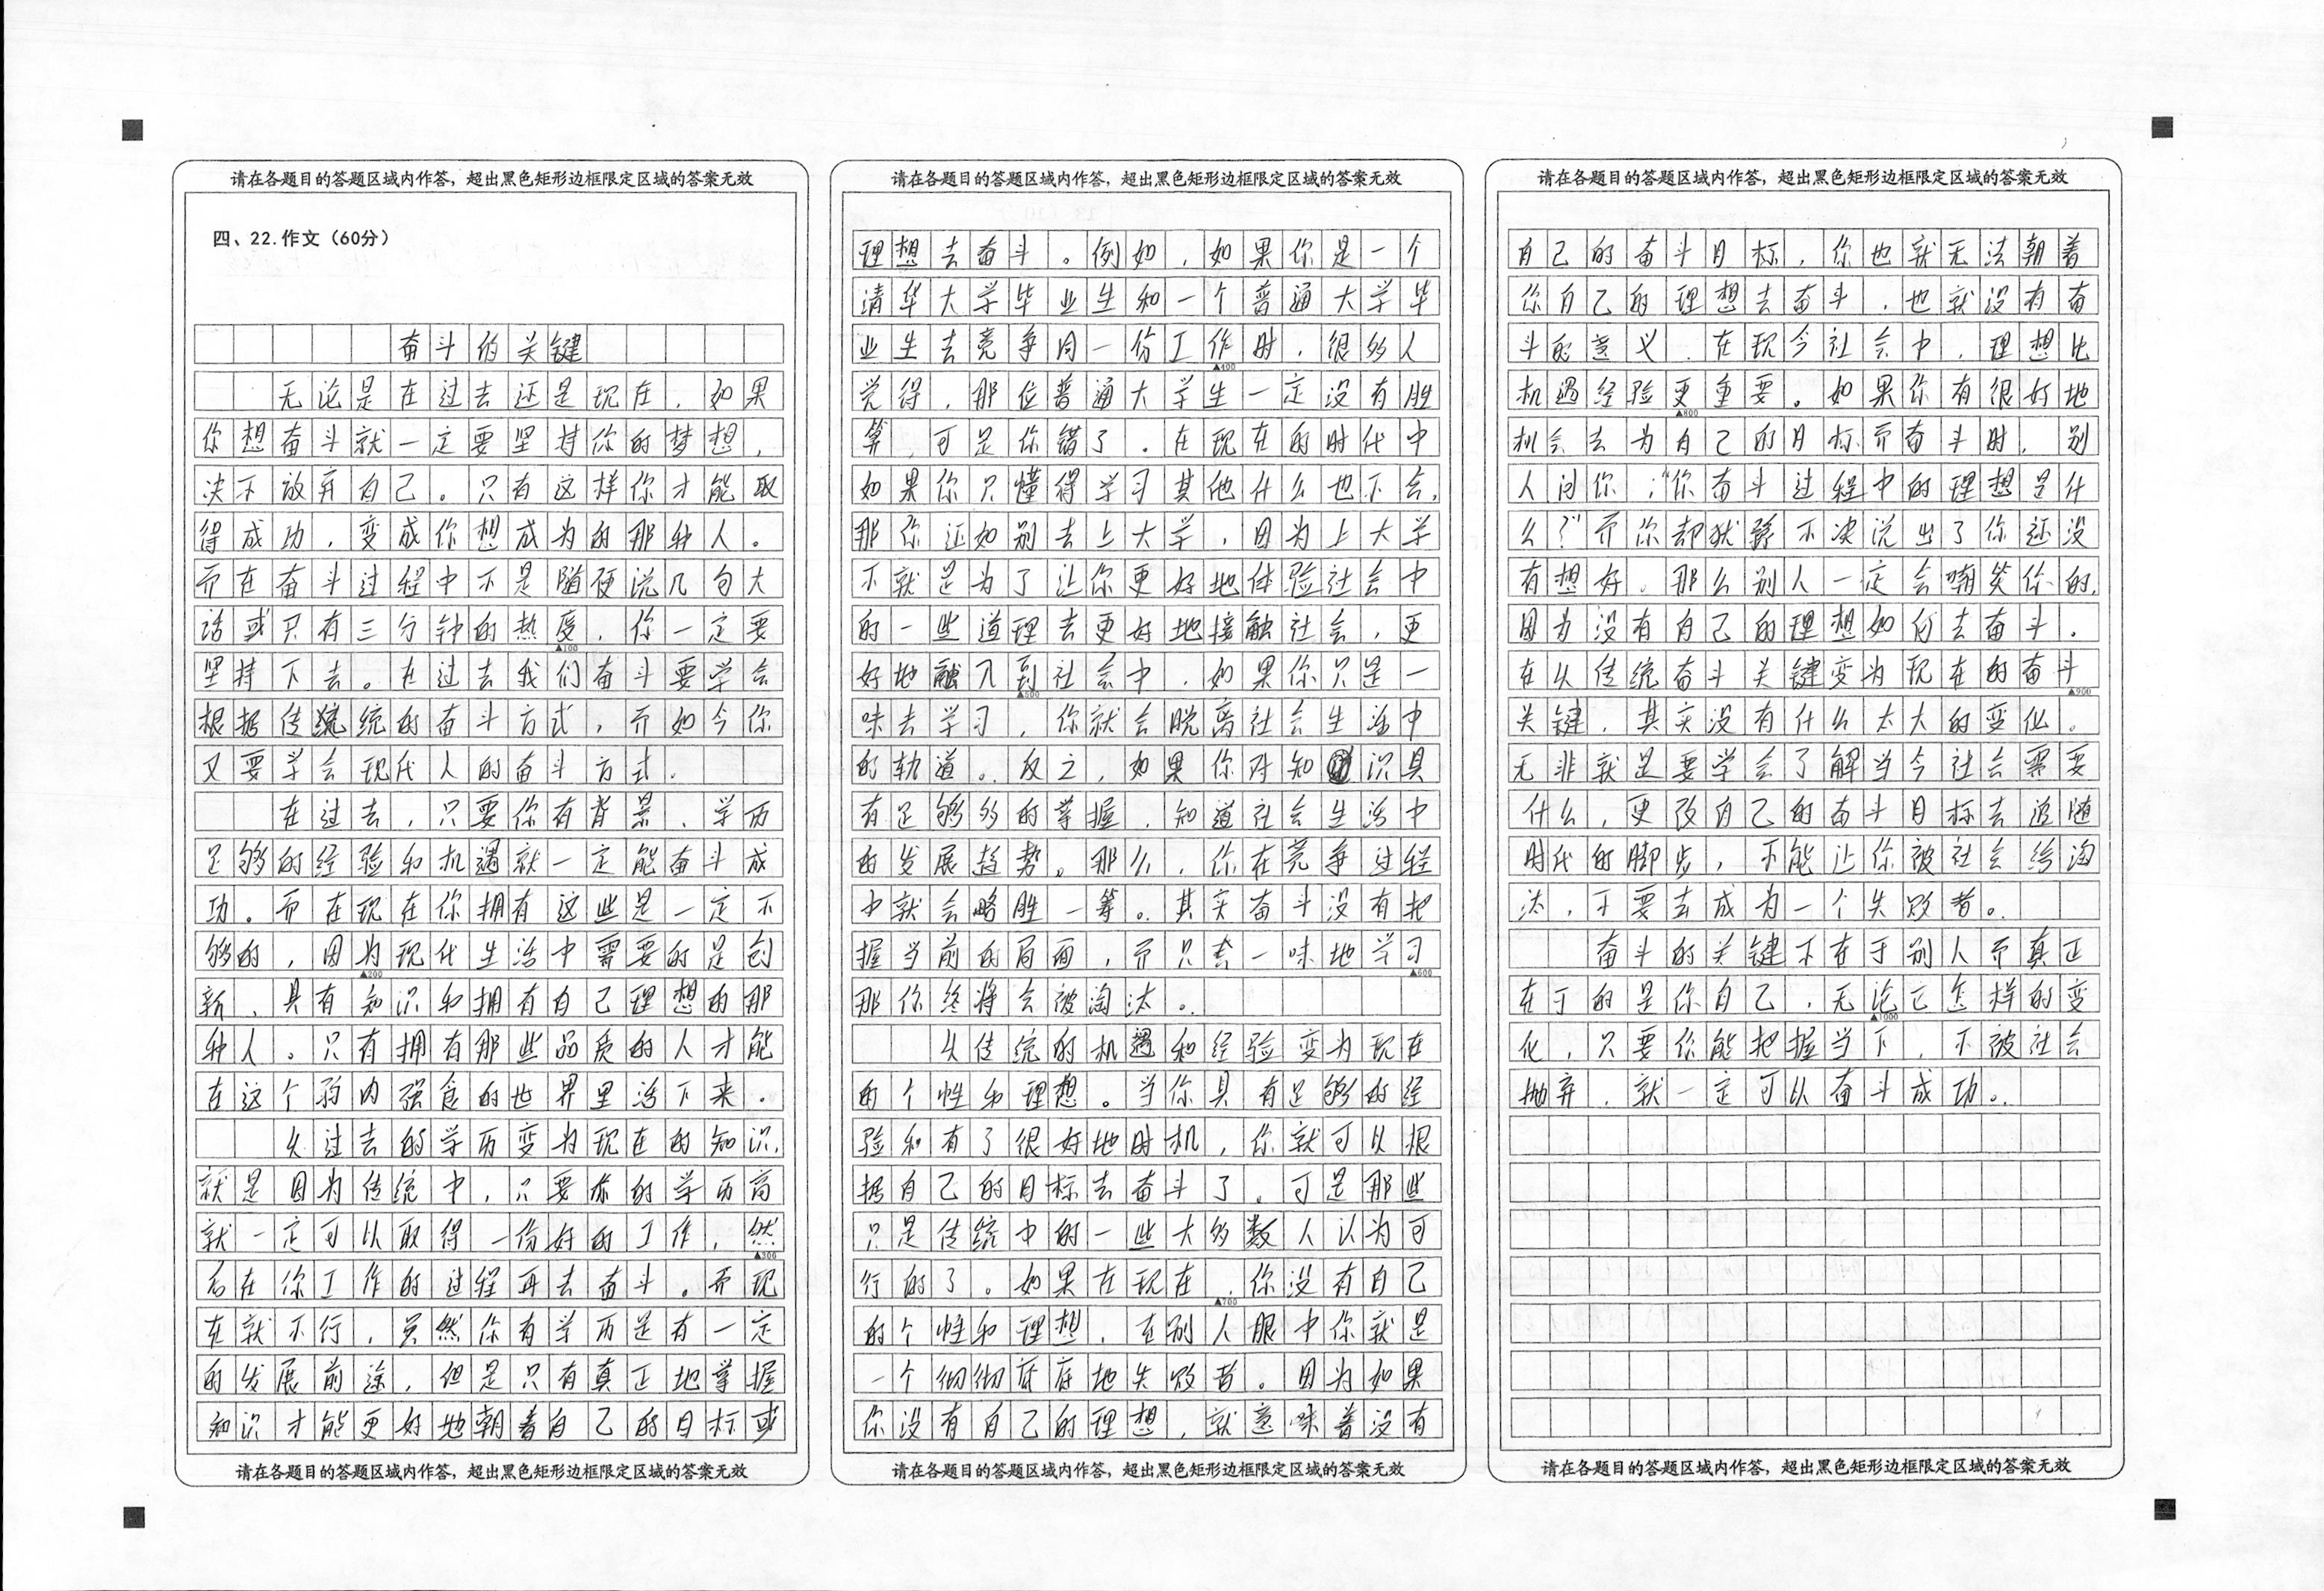 请在各题目的答题区域内作答，超出黑色矩形边框限定区域的答案无效
四、22.作文（60分）
奋斗的关键
无论是在过去还是现在，如果
你想奋斗就一定要坚持你的梦想，
决不放弃自己。只有这样你才能取
得成功，变成你想成为的那种人。
而在奋斗过程中不是随便说几句大
话或只有三分钟的热度，你一定要
▲100
坚持下去。在过去我们奋斗要学会
根据传统的奋斗方式，而如今你
又要学会现代人的奋斗方式。
在过去，只要你有背景、学历
足够的经验和机遇就一定能奋斗成
功。而在现在你拥有这些是一定不
够的，因为现代生活中需要的是创
▲200
新、具有知识和拥有自己理想的那
种人。只有拥有那些品质的人才能
在这个弱肉强食的世界里活下来。
从过去的学历变为现在的知识，
就是因为传统中，只要你的学历高
就一定可以取得一份好的工作，然
▲300
后在你工作的过程再去奋斗。而现
在就不行，虽然你有学历是有一定
的发展前途，但是只有真正地掌握
知识才能更好地朝着自己的目标或
请在各题目的答题区域内作答，超出黑色矩形边框限定区域的答案无效
请在各题目的答题区域内作答，超出黑色矩形边框限定区域的答案无效
理想去奋斗。例如，如果你是一个
清华大学毕业生和一个普通大学毕
业生去竞争同一份工作时，很多人
▲400
觉得，那位普通大学生一定没有胜
算，可是你错了。在现在的时代中
如果你只懂得学习其他什么也不会，
那你还如别去上大学，因为上大学
不就是为了让你更好地体验社会中
的一些道理去更好地接触社会，更
好地融入到社会中，如果你只是一
▲500
味去学习，你就会脱离社会生活中
的轨道。反之，如果你对知识具
有足够多的掌握，知道社会生活中
的发展趋势。那么，你在竞争过程
中就会略胜一筹。其实奋斗没有把
握当前的局面，而只去一味地学习
▲600
那你终将会被淘汰。
从传统的机遇和经验变为现在
的个性和理想。当你具有足够的经
验和有了很好地时机，你就可以根
据自己的目标去奋斗了。可是那些
只是传统中的一些大多数人认为可
行的了。如果在现在，你没有自己
▲700
的个性和理想，在别人眼中你就是
一个彻彻底底地失败者。因为如果
你没有自己的理想，就意味着没有
请在各题目的答题区域内作答，超出黑色矩形边框限定区域的答案无效
请在各题目的答题区域内作答，超出黑色矩形边框限定区域的答案无效
自己的奋斗目标，你也就无法朝着
你自己的理想去奋斗，也就没有奋
斗的意义，在现今社会中，理想比
机遇经验更重要。如果你有很好地
▲800
机会去为自己的目标而奋斗时，别
人问你：“你奋斗过程中的理想是什
么？”而你却犹豫不决说出了你还没
有想好。那么别人一定会嘲笑你的，
因为没有自己的理想如何去奋斗。
在从传统奋斗关键变为现在的奋斗
▲900
关键，其实没有什么太大的变化。
无非就是要学会了解当今社会需要
什么，更改自己的奋斗目标去追随
时代的脚步，不能让你被社会给淘
汰，不要去成为一个失败者。
奋斗的关键不在于别人而真正
在于的是你自己，无论它怎样的变
▲1000
化，只要你能把握当下，不被社会
抛弃，就一定可以奋斗成功。
请在各题目的答题区域内作答，超出黑色矩形边框限定区域的答案无效